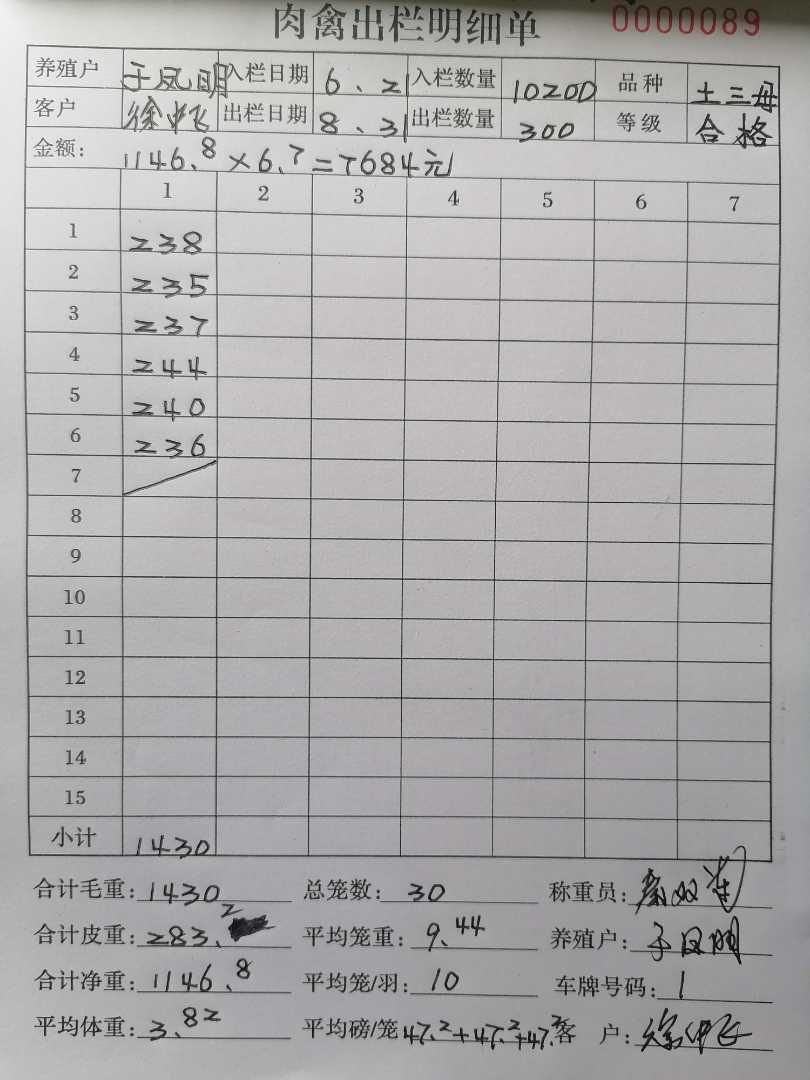 肉禽出栏明细单 0000089
养殖户 于凤明 入栏日期 6.21 入栏数量 10200 品种 土三母
客户 徐中飞 出栏日期 8.31 出栏数量 300 等级 合格
金额: 1146.8×6.7=7684元
1 2 3 4 5 6 7
1 238
2 235
3 237
4 244
5 240
6 236
7
8
9
10
11
12
13
14
15
小计 1430
合计毛重: 1430 总笼数: 30 称重员:
合计皮重: 283.2 平均笼重: 9.44 养殖户: 于凤明
合计净重: 1146.8 平均笼/羽: 10 车牌号码: 1
平均体重: 3.82 平均磅/笼 47.2+47.2+47.2 客 户: 徐中飞